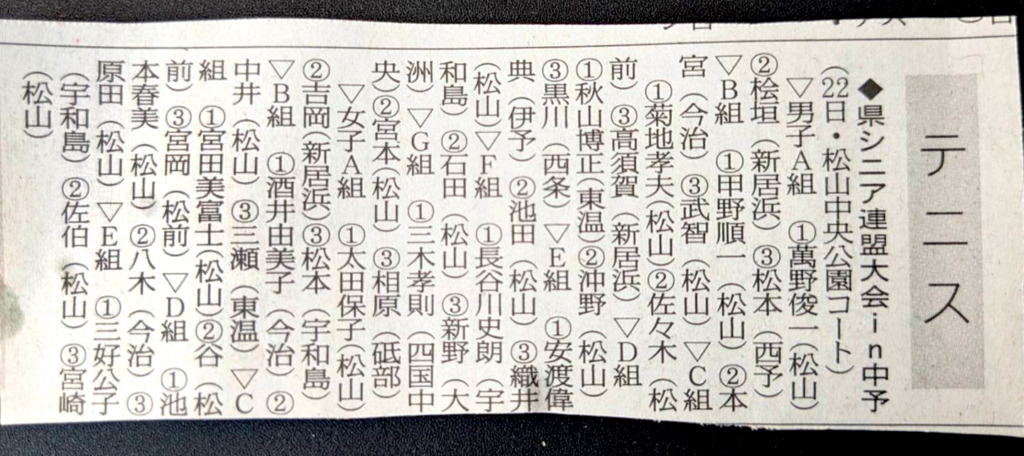 テニス
◆県シニア連盟大会ｉｎ中予
（22日・松山中央公園コート）
▽男子Ａ組　①萬野俊一（松山）
②桧垣（新居浜）③松本（西予）
▽Ｂ組　①甲野順一（松山）②本
宮（今治）③武智（松山）▽Ｃ組
①菊地孝夫（松山）②佐々木（松
前）③高須賀（新居浜）▽Ｄ組
①秋山博正（東温）②沖野（松山）
③黒川（西条）▽Ｅ組　①安渡偉
典（伊予）②池田（松山）③織井
（松山）▽Ｆ組　①長谷川史朗（宇
和島）②石田（松山）③新野（大
洲）▽Ｇ組　①三木孝則（四国中
央）②宮本（松山）③相原（砥部）
▽女子Ａ組　①太田保子（松山）
②吉岡（新居浜）③松本（宇和島）
▽Ｂ組　①酒井由美子（今治）②
中井（松山）③三瀬（東温）▽Ｃ
組　①宮田美富士（松山）②谷（松
前）③宮岡（松前）▽Ｄ組　①池
本春美（松山）②八木（今治）③
原田（松山）▽Ｅ組　①三好公子
（宇和島）②佐伯（松山）③宮崎
（松山）